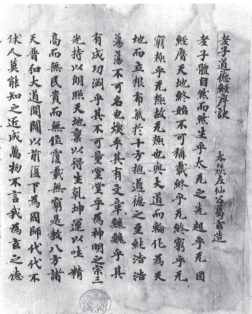 老子道德經序訣 太極左仙公葛玄造
老子體自然而然生乎太无之先起乎无因
經歷天地終始不可稱載終乎无終窮乎无
窮極乎无極故无極也與大道而輪化為天
地而立根布氣於十方抱道德之至純浩浩
蕩蕩不可名也煥乎其有文章巍巍乎其
有成功淵乎其不可量堂堂乎為神明之宗三
光持以朗照天地稟以得生乾坤運以吐精
高而無民貴而無位覆載無窮是教八方諸
天普弘大道開闢以前復下為國師代代不
休人莫能知之匠成萬物不言我為玄之德